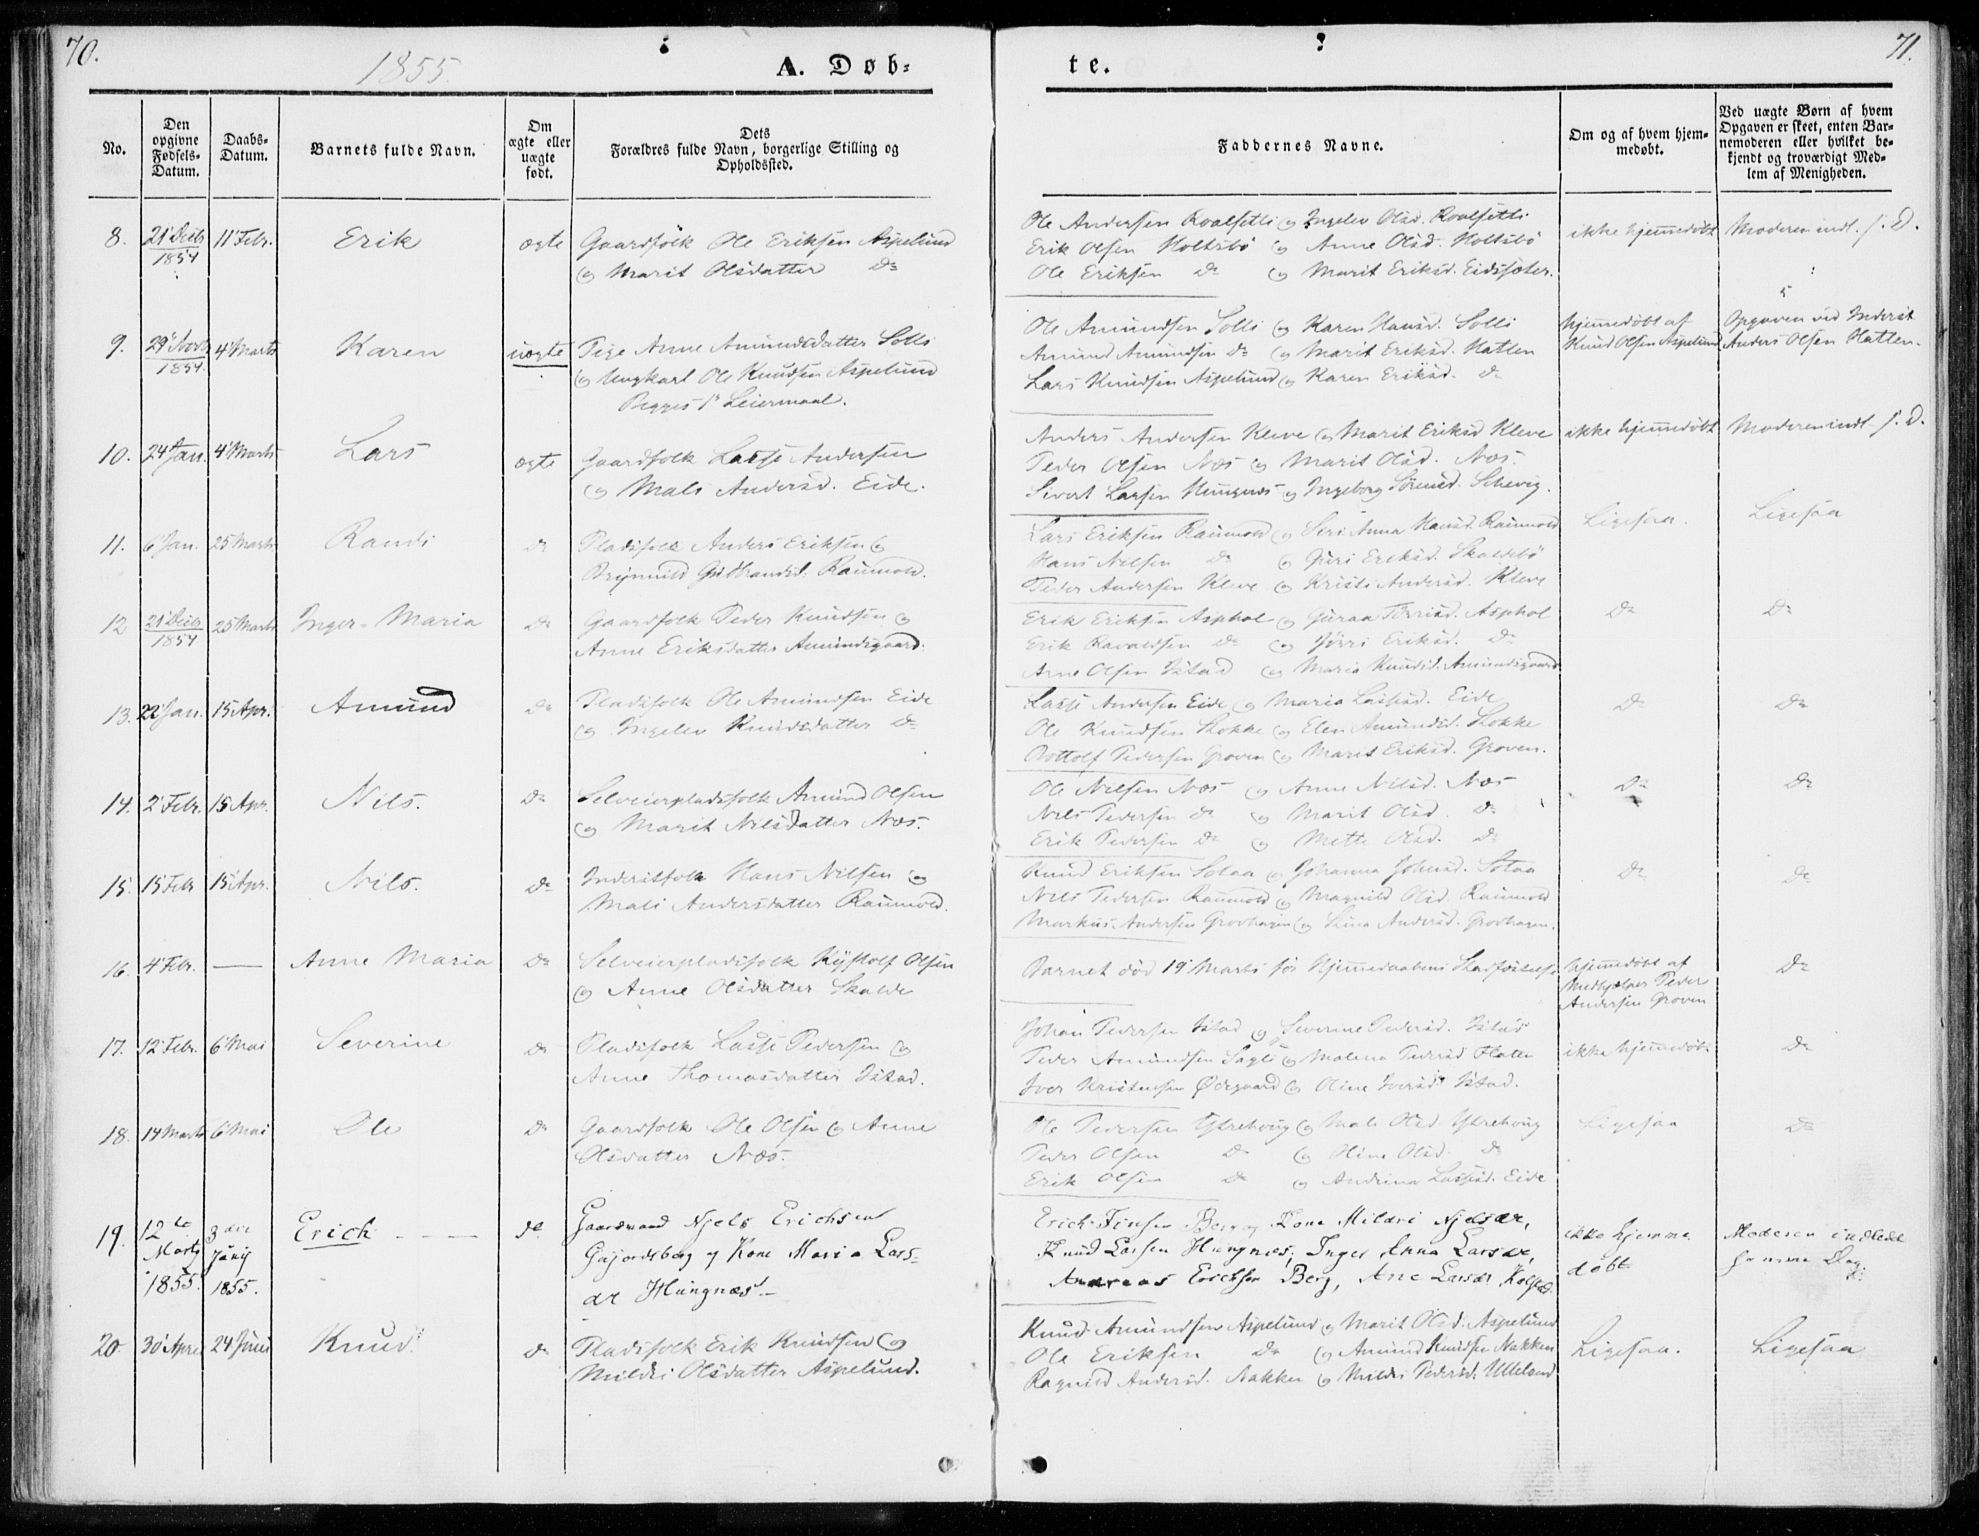 70.
1855.
A. Døb-
te.
71.
No.
Den opgivne Fødsels-Datum.
Daabs-Datum.
Barnets fulde Navn.
Om ægte eller uægte født.
Dets Forældres fulde Navn, borgerlige Stilling og Opholdssted.
Faddernes Navne.
Om og af hvem hjem-medøbt.
Ved uægte Børn af hvem Opgaven er skeet, enten Bar-nemoderen eller hvilket be-kjendt og troværdigt Med-lem af Menigheden.
8. 21 Decb 1854 11 Febr. Erik ægte
Gaardfolk Ole Eriksen Aspelund
og Marit Olsdatter Do
Ole Andersen Roalsetli og Ingelev Olsd. Roalsetli
Erik Olsen Holtsbø og Anne Olsd. Holtsbø
Ole Eriksen Do og Marit Eriksd. Eidssæter.
ikke hjemmedøbt
Moderen indl. s. D.
9. 29 1854. 4 Marts Karen uægte
Pige Anne Amundsdatter Solli
og Ungkarl Ole Knudsen Aspelund
Begges 1ste Leiermaal.
Ole Amundsen Solli og Karen Hansd. Solli
Amund Amundsen Do og Marit Eriksd. Hatlen
Lars Knudsen Aspelund og Karen Eriksd. Do
hjemmedøbt af
Knud Olsen Aspelund
Opgaven ved Inderst
Anders Olsen Hatlen.
10. 24 Jan. 4 Marts Lars ægte
Gaardfolk Lasse Andersen
og Mali Andersd. Eide.
Anders Andersen Kleve og Marit Eriksd Kleve
Peder Olsen Næs og Marit Olsd. Næs.
Sivert Larsen Hungnes og Ingeborg Sørensd.
ikke hjemmedøbt
Moderen indl. s. D.
11. 6 Jan. 25 Marts Randi Do
Pladsfolk Anders Eriksen og
Brynnild Gudbrandsd. Raumvold.
Lars Eriksen Raumvold og Siri Anna Hansd. Raumvold
Hans Nilsen Do og Guri Eriksd. Skaldebø
Peder Andersen Kleve og Kristi Andersd. Kleve
Ligesaa.
Ligesaa
12 21 Decb 1854 25 Marts Inger-Maria Do
Gaardfolk Peder Knudsen og
Anne Eriksdatter Amundsgaard.
Erik Eriksen Asphol og Guraa Asphol
Erik Ravaldsen Do og Eriksd. Do
Arne Olsen Istad og Maria Knudsd. Amundsgaard
Do
Do
13. 22 Jan. 15 Apr. Amund Do
Pladsfolk Ole Amundsen Eide
og Ingelev Knudsdatter Do
Lasse Andersen Eide og Maria Lassesd. Eide
Ole Knudsen Stokke og Elen Amundsd. Stokke
Bottolf Pedersen Groven og Marit Eriksd. Groven.
Do
Do
14. 2 Febr. 15 Apr. Nils. Do
Selveierpladsfolk Amund Olsen
og Marit Nilsdatter Næs.
Ole Nilsen Næs og Anne Nilsd. Næs
Nils Pedersen Do og Marit Olsd. Do
Erik Pedersen Do og Mette Olsd. Do
Do
Do
15. 15 Febr 15 Apr. Nils. Do
Inderstfolk Hans Nilsen og
Mali Andersdatter Raumvold.
Knud Eriksen Solaa og Johanna Johnsd. Solaa
Nils Pedersen Raumvold og Magnild Olsd. Raumvold
Markus Andersen Grovhagen og Andersd. Grovhagen.
Do
Do
16. 4 Febr. — Anne Maria Do
Selveierpladsfolk Olsen
og Anne Olsdatter Skalde
Barnet død 19 Marts før Hjemmedaabens Stadfæstelse
hjemmedøbt af
Medhjelper Peder
Andersen Groven
Do
17. 12 Febr. 6 Mai Severine Do
Pladsfolk Lasse Pedersen og
Anne Thomasdatter Istad.
Johan Pedersen Istad og Severine Pedersd. Istad
Peder Amundsen og Malena Pedersd Flaten
Iver Kristensen Ødegaard og Oline Iversd. Istad.
ikke hjemmedøbt
Do
18. 14 Marts 6 Mai Ole Do
Gaardfolk Ole Olsen og Anne
Olsdatter Næs.
Ole Pedersen og Mali Olsd
Peder Olsen Do og Oline Olsd. Do
Erik Olsen Do og Andrina Lassesd. Eide
Ligesaa
Do
19. 12te Marts 1855. 3die Junij 1855. Erich - - - do
Gaardmand Njels Erichsen
Gujordsberg og Kone Maria Lars-
dr Hungnæs.-
Erich Finsen Berg og Kone Mildri Njelsdr,
Knud Larsen Hungnæs, Inger Anna Larsdr,
Andreas Erichsen Berg, Ane Larsdr Kolstad.
ikke hjemme
døbt
Moderen indledt
samme Dag.
20. 30 April 24 Juni Knud. Do
Pladsfolk Erik Knudsen og
Mildri Olsdatter Aspelund.
Knud Amundsen Aspelund og Marit Olsd. Aspelund
Ole Eriksen Do og Amund Knudsen Nakken
Ragnild Andersd. Nakken og Mildri Pedersd. Ullelund
Ligesaa.
Ligesaa